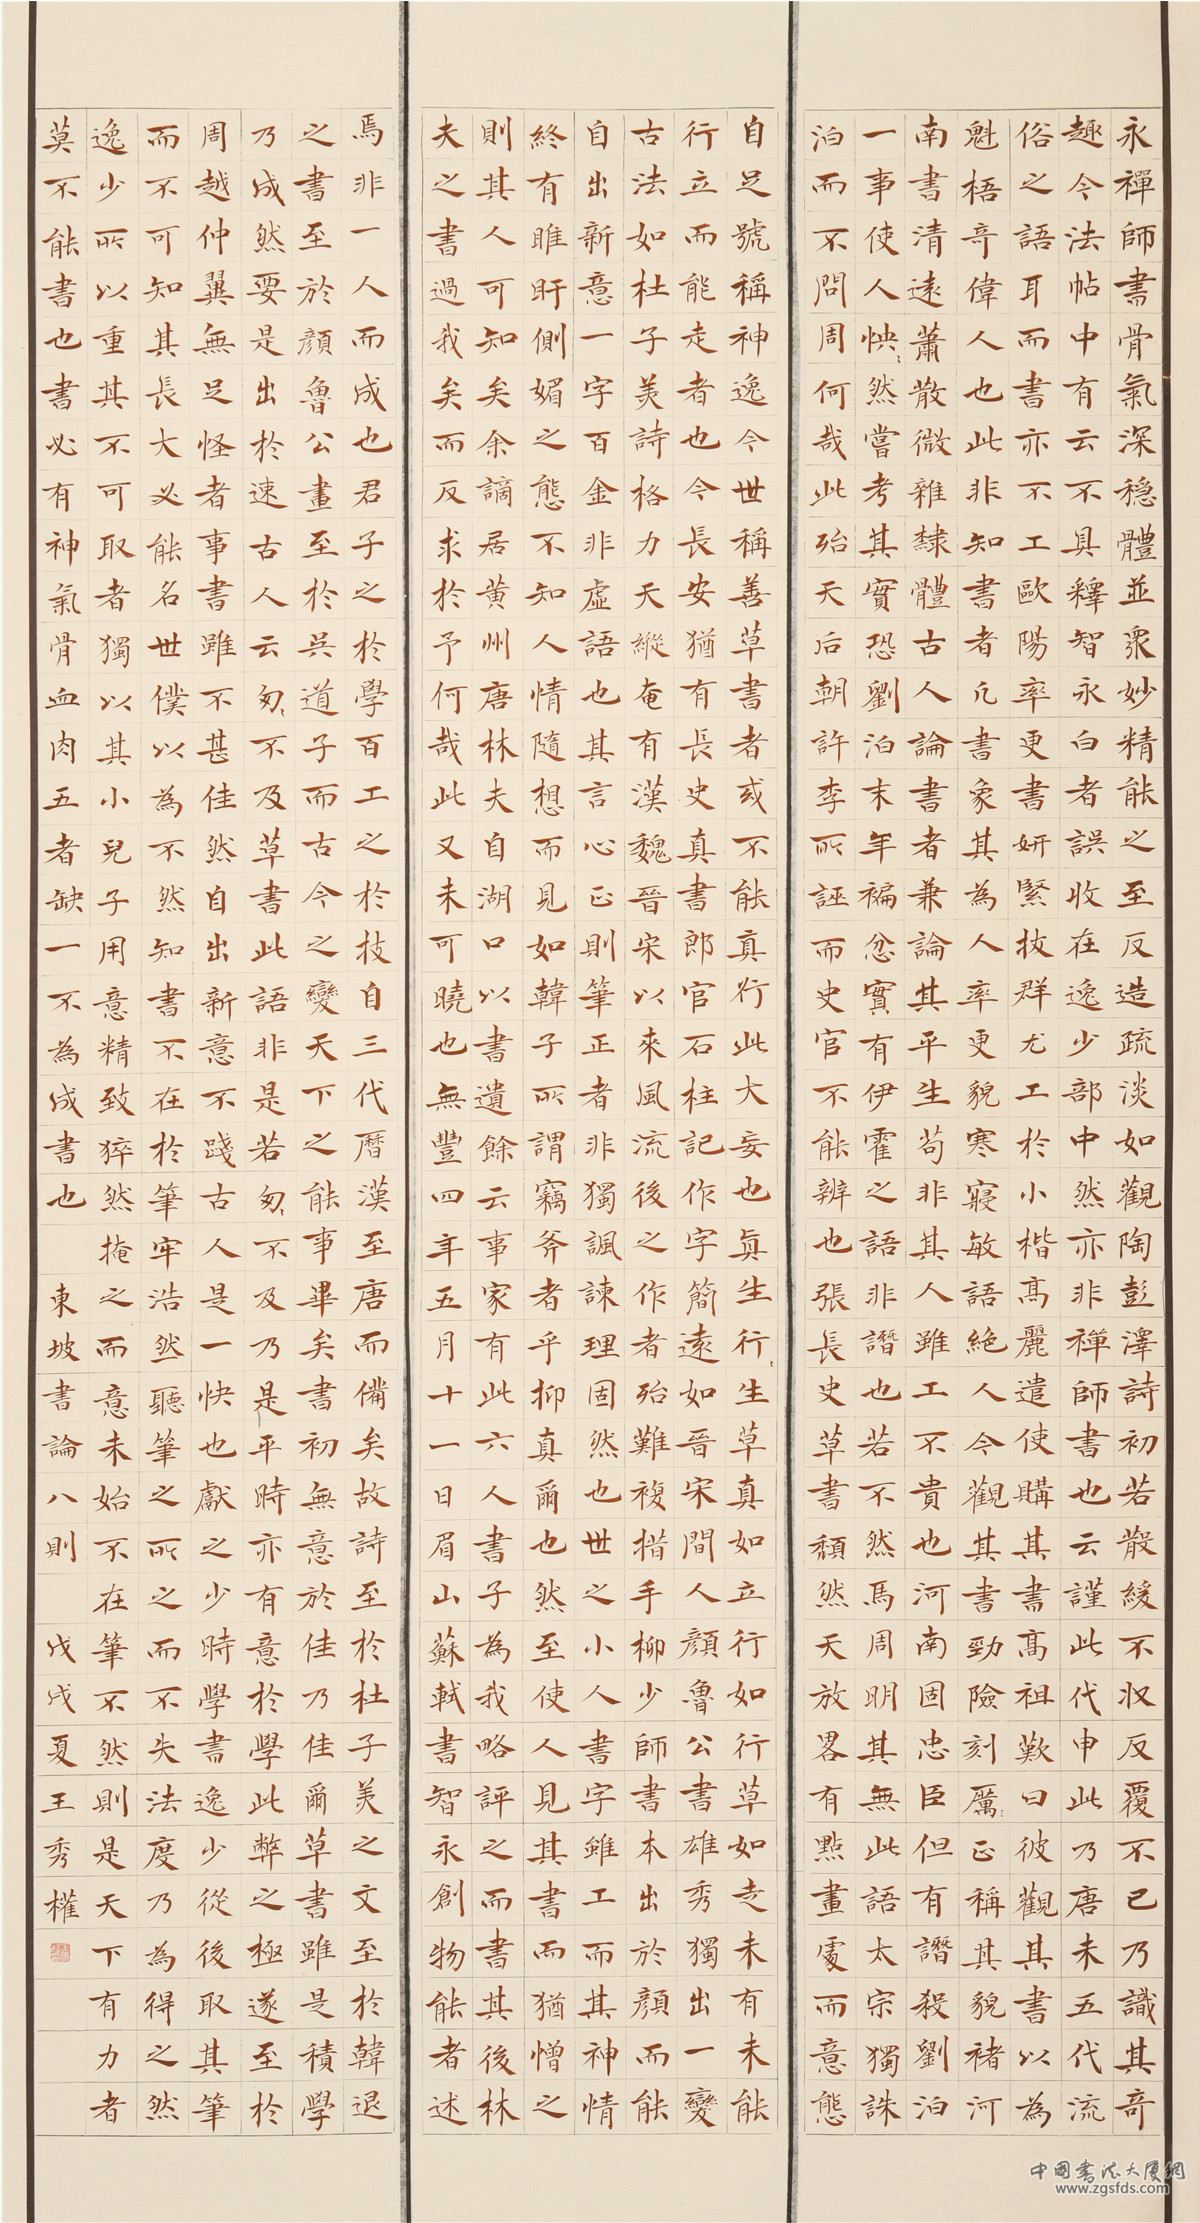 永禪師書骨氣深穩體並眾妙精能之至反造疏淡如觀陶彭澤詩初若散緩不收反覆不已乃識其奇
趣今法帖中有云不具釋智永白者誤收在逸少部中然亦非禪師書也云謹此代申此乃唐末五代流
俗之語耳而書亦不工歐陽率更書妍緊拔群尤工於小楷高麗遣使購其書高祖歎曰彼觀其書以為
魁梧奇偉人也此非知書者凡書象其為人率更貌寒寢敏語絕人今觀其書勁險刻厲正稱其貌褚河
南書清遠蕭散微雜隸體古人論書者兼論其平生苟非其人雖工不貴也河南固忠臣但有譖殺劉泊
一事使人怏〻然嘗考其實恐劉泊末年褊忿實有伊霍之語非譖也若不然馬周明其無此語太宗獨誅
泊而不問周何哉此殆天后朝許李所誣而史官不能辨也張長史草書頹然天放畧有點畫處而意態
自足號稱神逸今世稱善草書者或不能真行此大妄也真生行〻生草真如立行如行草如走未有未能
行立而能走者也今長安猶有長史真書郎官石柱記作字簡遠如晉宋間人顏魯公書雄秀獨出一變
古法如杜子美詩格力天縱奄有漢魏晉宋以來風流後之作者殆難複措手柳少師書本出於顏而能
自出新意一字百金非虛語也其言心正則筆正者非獨諷諫理固然也世之小人書字雖工而其神情
終有睢盱側媚之態不知人情隨想而見如韓子所謂竊斧者乎抑真爾也然至使人見其書而猶憎之
則其人可知矣余謫居黃州唐林夫自湖口以書遺餘云事家有此六人書子為我略評之而書其後林
夫之書過我矣而反求於予何哉此又未可曉也無豐四年五月十一日眉山蘇軾書智永創物能者述
焉非一人而成也君子之於學百工之於技自三代曆漢至唐而備矣故詩至於杜子美之文至於韓退
之書至於顏魯公畫至於吳道子而古今之變天下之能事畢矣書初無意於佳乃佳爾草書雖是積學
乃成然要是出於速古人云匆〻不及草書此語非是若匆〻不及乃是平時亦有意於學此弊之極遂至於
周越仲翼無足怪者事書雖不甚佳然自出新意不踐古人是一快也獻之少時學書逸少從後取其筆
而不可知其長大必能名世僕以為不然知書不在於筆牢浩然聽筆之所之而不失法度乃為得之然
逸少所以重其不可取者獨以其小兒子用意精致猝然掩之而意未始不在筆不然則是天下有力者
莫不能書也書必有神氣骨血肉五者缺一不為成書也 東坡書論八則 戊戌夏王秀權
中國書法大厦網
www.zgsfds.com